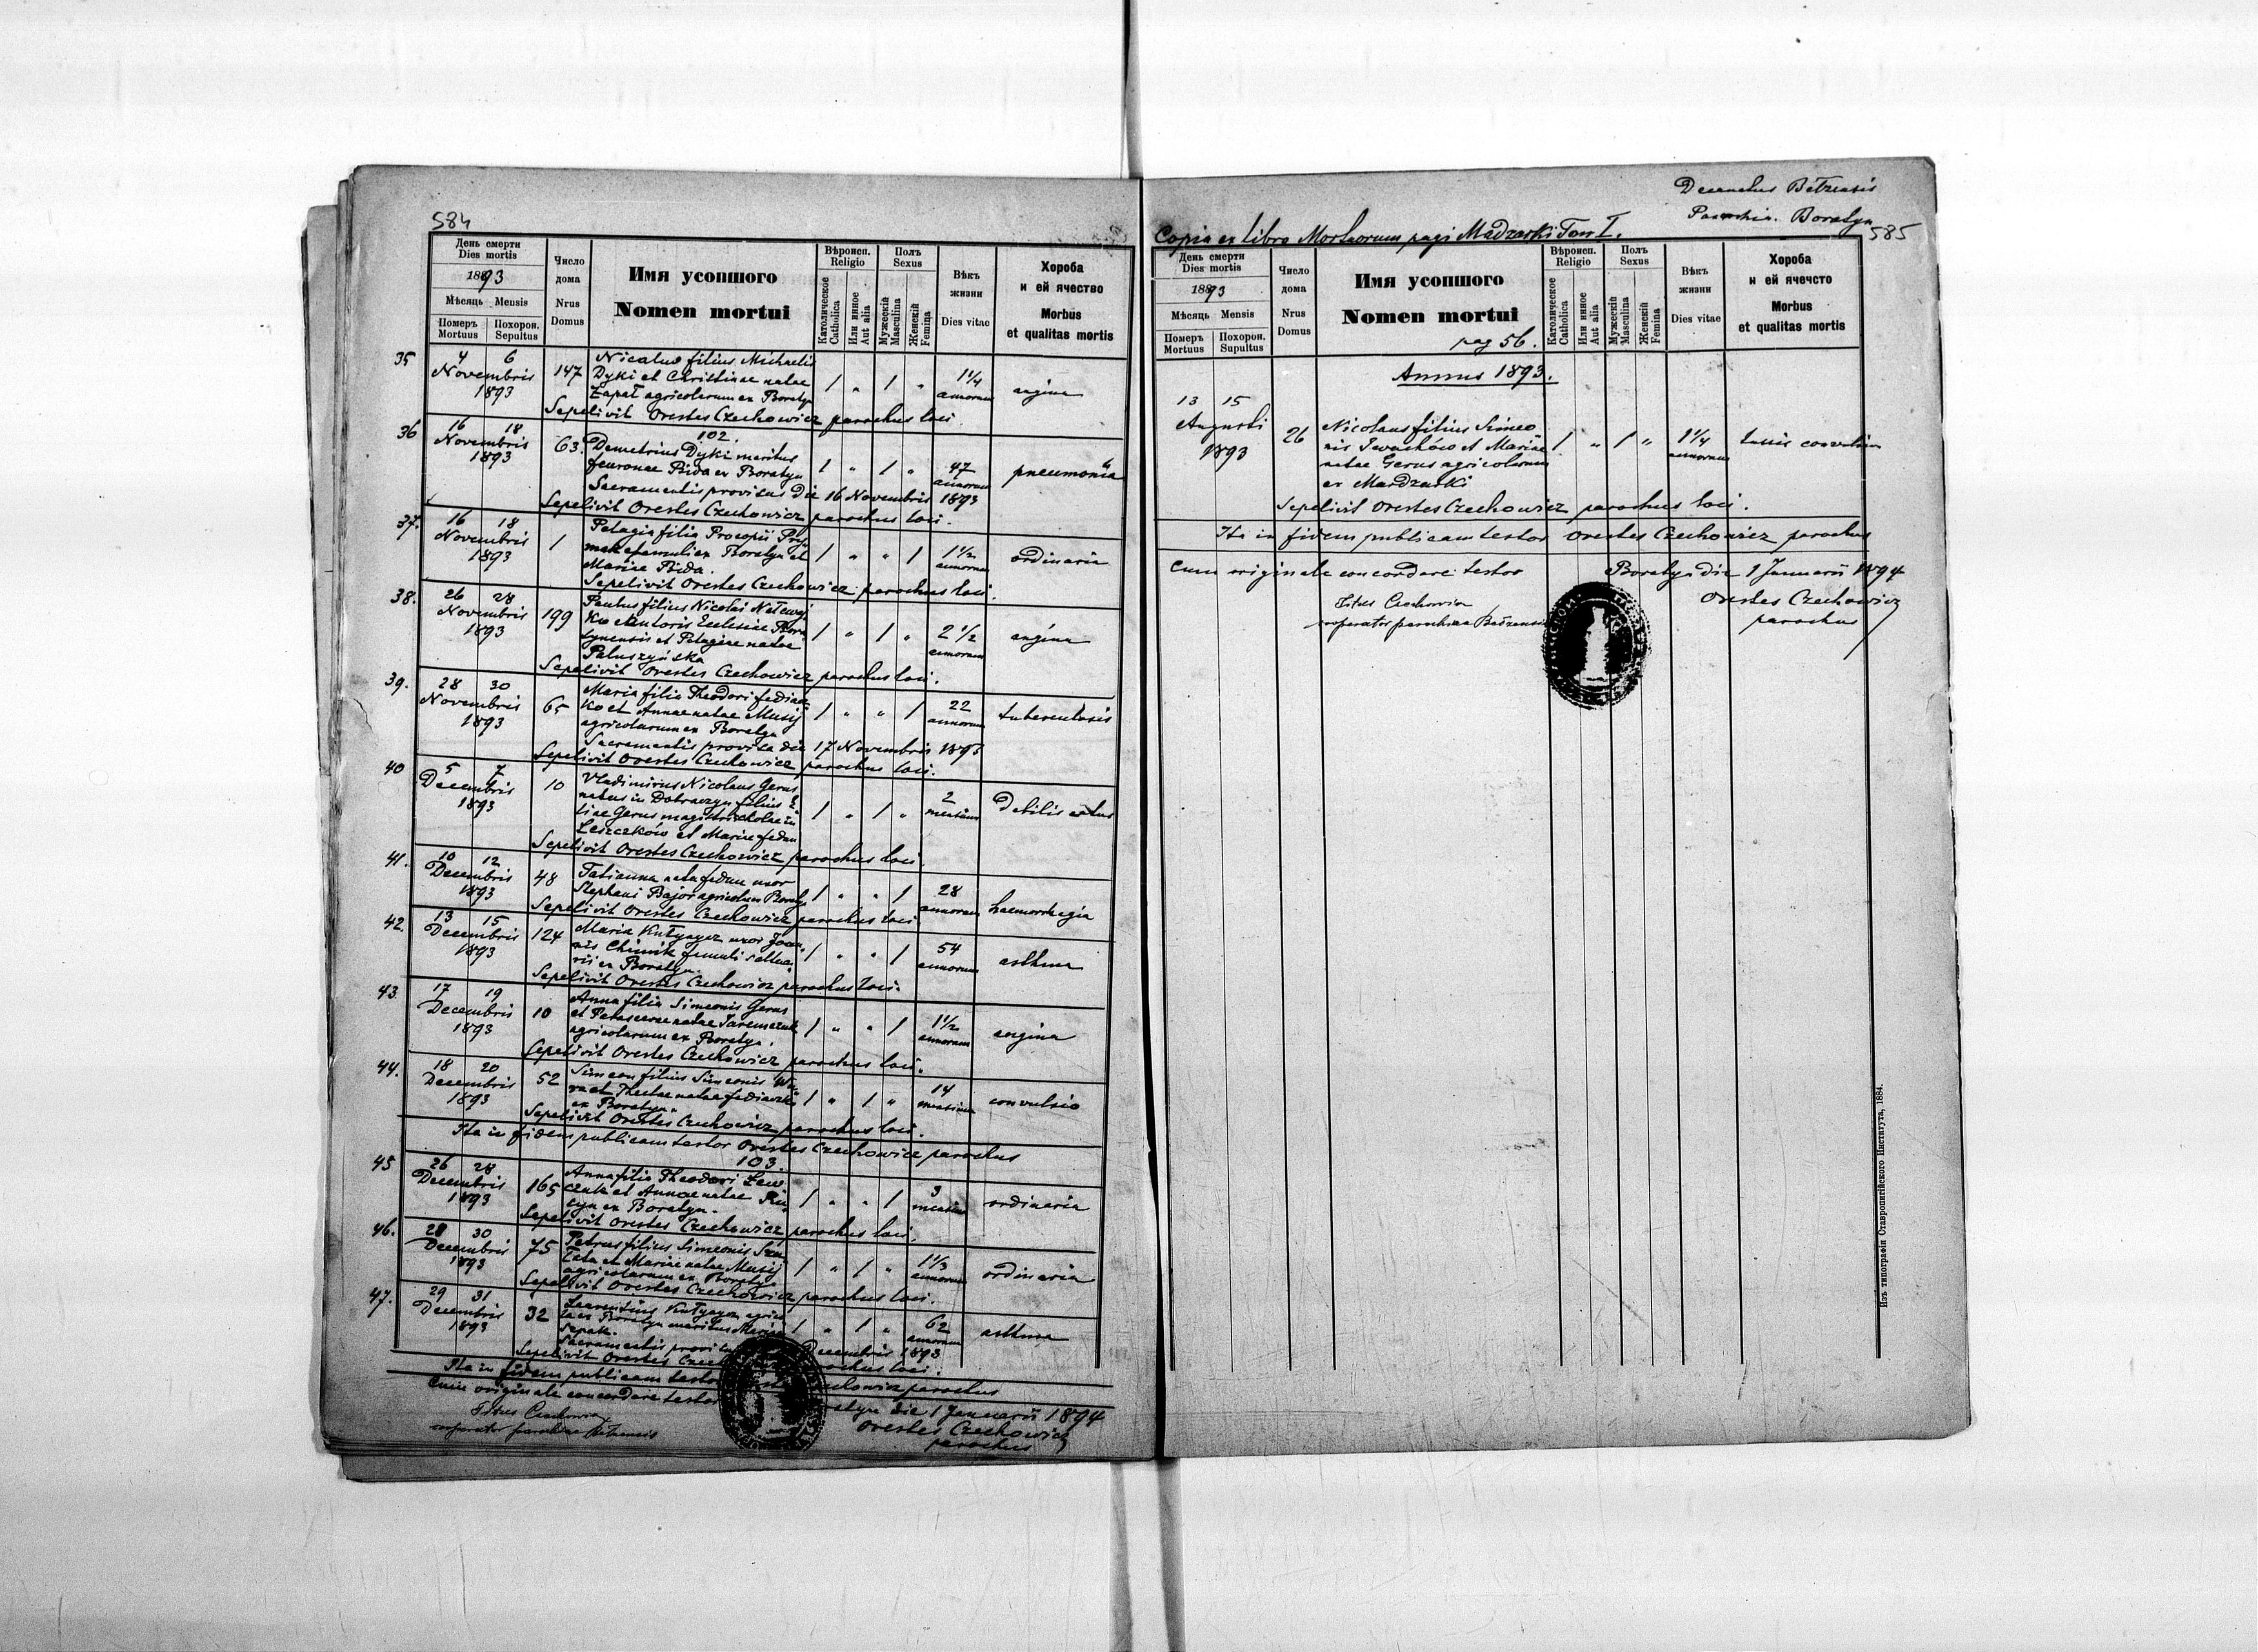 584
День смерти
Dies mortis
1893
Мѣсяць Mensis
Померъ
Mortuus
Похорон.
Sepultus
Число
дома
Nrus
Domus
Имя усопшого
Nomen mortui
Вѣроисп.
Religio
Католическое
Catholica
Или инное
Aut alia
Полъ
Sexus
Мужескій
Masculina
Женскій
Femina
Вѣкъ
жизни
Dies vitae
Хороба
и ей ячество
Morbus
et qualitas mortis
35 4 6 Nicolaus filius Michaelis
Novembris 147 Dyki et Christinae natae 1 " 1 " 1 1/4
1893 Zapał agricolarum ex Boratyn annorum angina
Sepelivit Orestes Czechowicz parochus loci.
102.
36 16 18 63. Demetrius Dyki maritus
Novembris Feuronae Bida ex Boratyn 1 " 1 " 47 pneumonia
1893 Sacramentis provisus die 16 Novembris 1893 annorum
Sepelivit Orestes Czechowicz parochus loci.
37. 16 18 Pelagia filia Procopii
Novembris 1 famuli ex Boratyn et 1 " " 1 1 1/2 ordinaria
1893 Mariae Bida. annorum
Sepelivit Orestes Czechowicz parochus loci.
38. 26 28 Paulus filius Nicolai
Novembris 199 ko cantoris Ecclesiae Bora 1 " 1 " 2 1/2 angina
1893 tynensis et Pelagiae natae annorum
Paluszyńska
Sepelivit Orestes Czechowicz parochus loci.
39. 28 30 Maria filia Theodori
Novembris 65 ko et Annae natae Musij 1 " " 1 22 tuberculosis
1893 agricolarum ex Boratyn annorum
Sacramentis provisa die 17 Novembris 1893
Sepelivit Orestes Czechowicz parochus loci.
40 5 7 Vladimirus Nicolaus Gerus
Decembris 10 natus in Dobraczyn filius E
1893 liae Gerus magistri scholae in 1 " 1 " 2 mensium Debilis
Leszczków et Mariae Fedun
Sepelivit Orestes Czechowicz parochus loci.
41. 10 12 Tatianna nata Fedun uxor
Decembris 48 Stephani Bajor agricolae Boratyn 1 " " 1 28 haemorrhagia
1893 annorum
Sepelivit Orestes Czechowicz parochus loci
42. 13 15 Maria Kułyayer uxor Joan
Decembris 124 nis famuli saltua 1 " " 1 54 asthma
1893 rii ex Boratyn. annorum
Sepelivit Orestes Czechowicz parochus loci.
43 17 19 Anna filia Simeonis Gerus
Decembris 10 et natae Jaremczuk 1 " " 1 1 1/2 angina
1893 agricolarum ex Boratyn. annorum
Sepelivit Orestes Czechowicz parochus loci.
44. 18 20 Simeon filius Simeonis
Decembris 52 et Theclae natae 1 " 1 " 14 convulsio
1893 ex Boratyn. mensium
Sepelivit Orestes Czechowicz parochus loci.
Ita in fidem publicam testor Orestes Czechowicz parochus
103.
45 26 28 Anna filia Theodori Lew
Decembris 165 czuk et Annae natae 1 " " 1 3 ordinaria
1893 ex Boratyn. mensium
Sepelivit Orestes Czechowicz parochus loci.
46. 28 30 Petrus filius Simeonis
Decembris 75 et Mariae natae Musij 1 " 1 " 1 1/3 ordinaria
1893 agricolarum ex Boratyn annorum
Sepelivit Orestes Czechowicz parochus loci.
47. 29 31 Laurentius agrico
Decembris 32 la ex Boratyn maritus Mariae 1 " 1 " 62 asthma
1893 annorum
Sacramentis Decembris 1893
Sepelivit Orestes parochus loci.
Ita in fidem publicam testor parochus
Cum originale concordare testor Boratyn die 1 Januarii 1894
Titus Czechowicz Orestes Czechowicz
cooperator parochiae Bełzensis parochus
Decanatus Bełzensis
Parochia Boratyn
585
Copia ex libro Mortuorum pagi Madzarki Tom I.
День смерти
Dies mortis
1893
Мѣсяць Mensis
Померъ
Mortuus
Похорон.
Supultus
Число
дома
Nrus
Domus
Имя усопшого
Nomen mortui
pag 56.
Вѣроисп.
Religio
Католическое
Catholica
Или инное
Aut alia
Полъ
Sexus
Мужескій
Masculina
Женскій
Femina
Вѣкъ
жизни
Dies vitae
Хороба
и ей ячечсто
Morbus
et qualitas mortis
Annus 1893.
13 15
Augusti 26 Nicolaus filius Simeo
1893 nis Iwachów et Mariae 1 " 1 " 1 1/4 tussis convulsiva
natae Gerus agricolarum annorum
ex Madzarki
Sepelivit Orestes Czechowicz parochus loci.
Ita in fidem publicam testor Orestes Czechowicz parochus
Cum originale concordare testor Boratyn die 1 Januarii 1894
Titus Czechowicz Orestes Czechowicz
cooperator parochiae Bełzensis parochus
Изъ типографіи Ставропигійского Института, 1884.